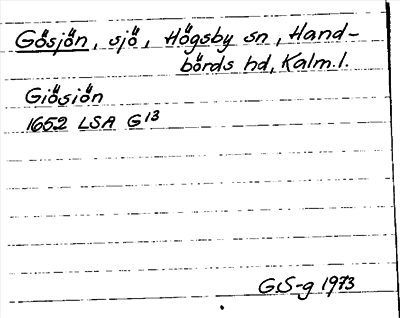 Gösjön, sjö, Högsby sn, Hand-
börds hd, Kalm. l.
Giösiön
1652 LSA G13
G.S-g 1973